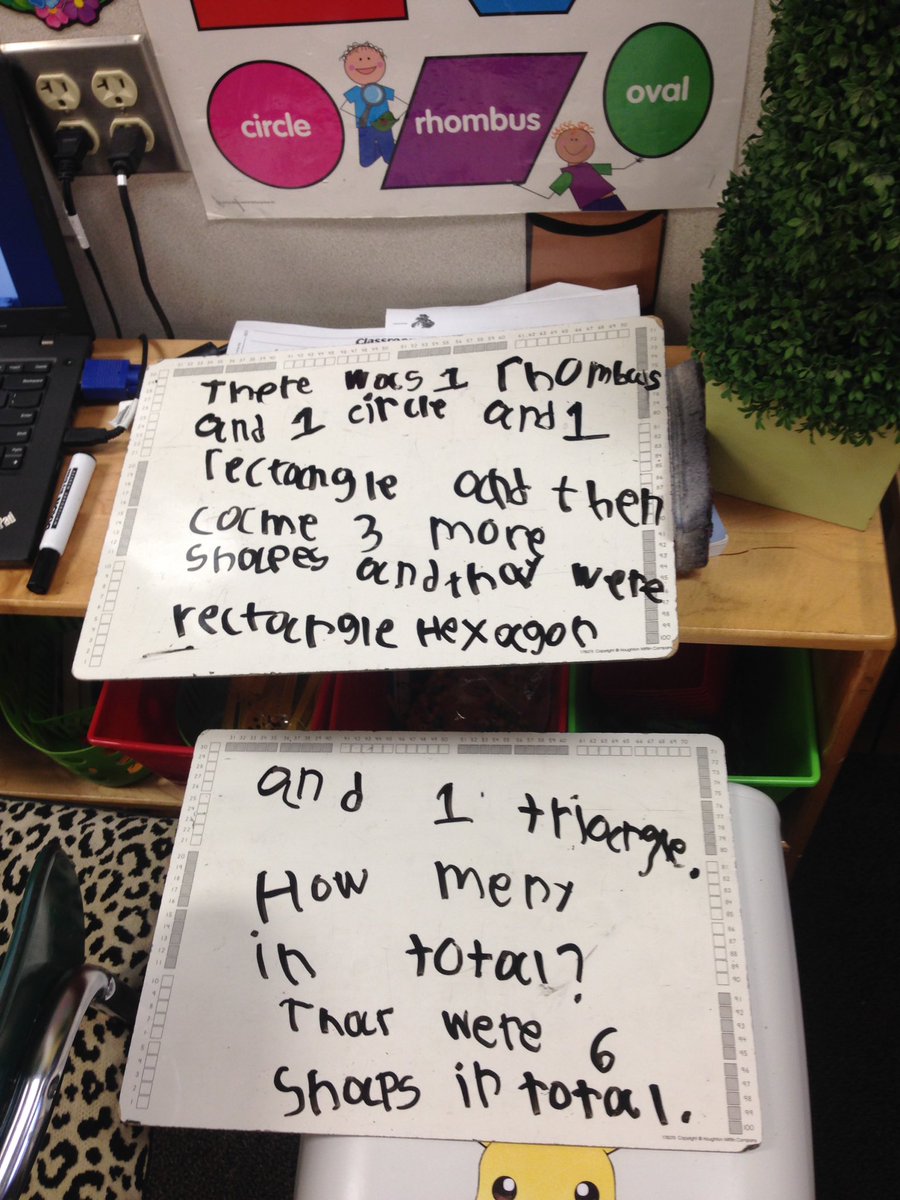 circle
rhombus
oval
There was 1 rhombus
and 1 circle and 1
rectangle and then
came 3 more
shapes and thay were
rectangle Hexagon
and 1 triangle.
How meny
in total?
Thar were 6
Shaps in total.